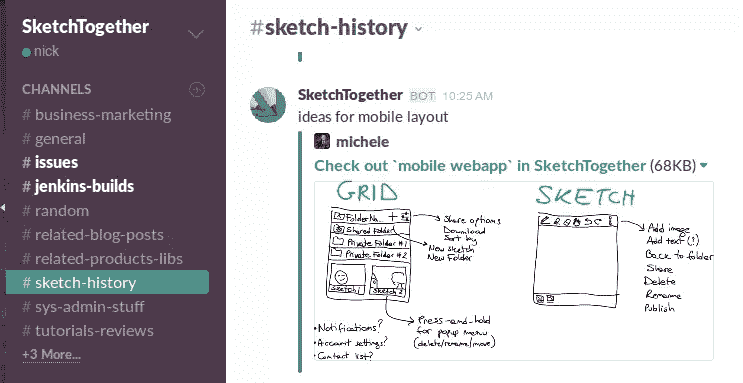 SketchTogether
nick
CHANNELS
# business-marketing
# general
# issues
# jenkins-builds
# random
# related-blog-posts
# related-products-libs
# sketch-history
# sys-admin-stuff
# tutorials-reviews
+3 More...
#sketch-history
SketchTogether BOT 10:25 AM
ideas for mobile layout
michele
Check out `mobile webapp` in SketchTogether (68KB)
GRID
Folder Na..
Shared Folder
Private Folder #1
Private Folder #2
Sketch 1
Sketch 2
Share options
Download
Sort by
New Sketch
New Folder
Press-and-hold
for popup menu
(delete/rename/move)
• Notifications?
• Account settings?
• Contact list?
SKETCH
Add image
Add text (!)
Back to folder
Share
Delete
Rename
Publish